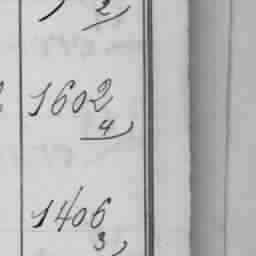 2
1602
4
1406
3